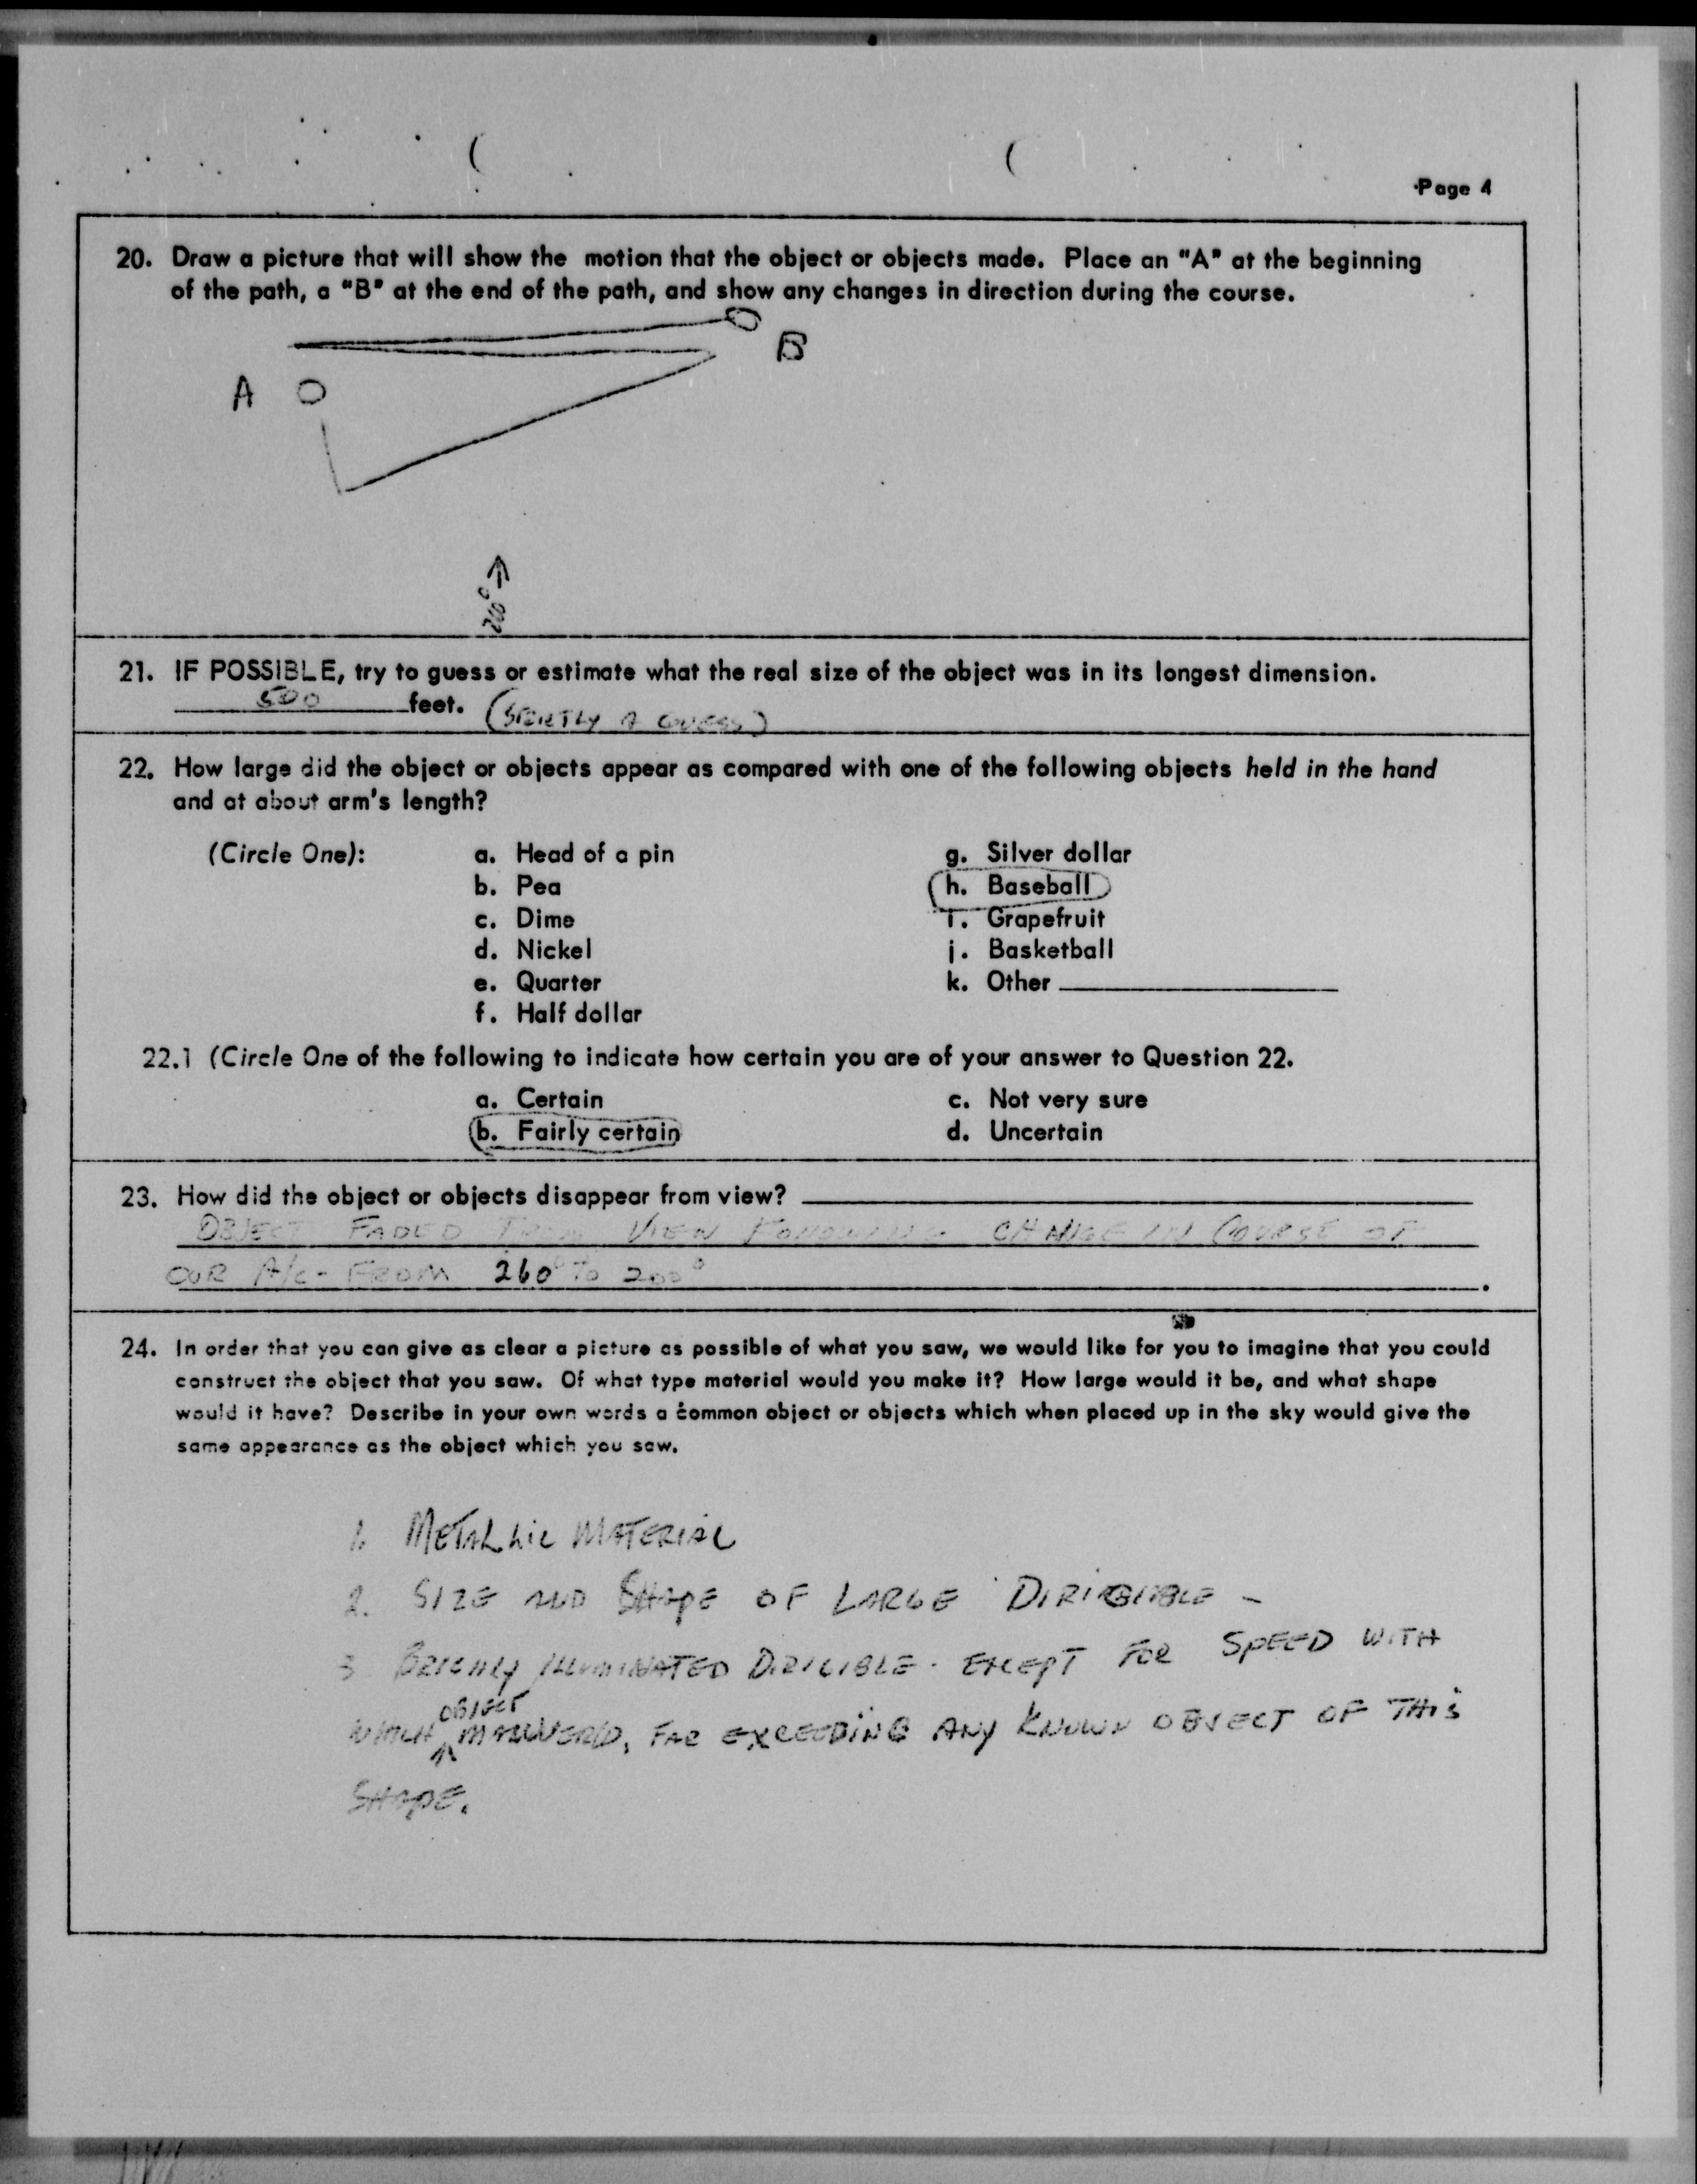 Page 4
20. Draw a picture that will show the motion that the object or objects made. Place an "A" at the beginning
of the path, a "B" at the end of the path, and show any changes in direction during the course.
B
A
260° →
21. IF POSSIBLE, try to guess or estimate what the real size of the object was in its longest dimension.
500 feet. (STRICTLY A GUESS)
22. How large did the object or objects appear as compared with one of the following objects held in the hand
and at about arm's length?
(Circle One): a. Head of a pin g. Silver dollar
b. Pea h. Baseball
c. Dime i. Grapefruit
d. Nickel j. Basketball
e. Quarter k. Other
f. Half dollar
22.1 (Circle One of the following to indicate how certain you are of your answer to Question 22.
a. Certain c. Not very sure
b. Fairly certain d. Uncertain
23. How did the object or objects disappear from view?
OBJECT FADED FROM VIEW FOLLOWING CHANGE IN COURSE OF
OUR A/C - FROM 260° TO 200°
24. In order that you can give as clear a picture as possible of what you saw, we would like for you to imagine that you could
construct the object that you saw. Of what type material would you make it? How large would it be, and what shape
would it have? Describe in your own words a common object or objects which when placed up in the sky would give the
same appearance as the object which you saw.
1. METALLIC MATERIAL
2. SIZE AND SHAPE OF LARGE DIRIGIBLE -
3 ILLUMINATED DIRIGIBLE - EXCEPT FOR SPEED WITH
OBJECT
WHICH ^ , FAR EXCEEDING ANY KNOWN OBJECT OF THIS
SHAPE.